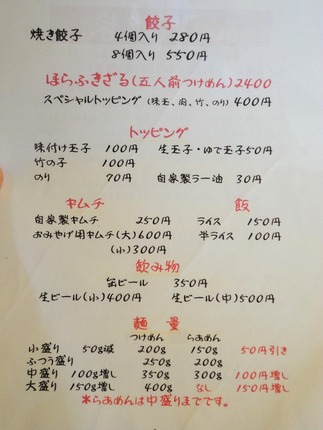 餃子
焼き餃子 4個入り 280円
8個入り 550円
ほらふきざる(五人前つけめん)2400
スペシャルトッピング(味玉、肉、竹、のり) 400円
トッピング
味付け玉子 100円 生玉子・ゆで玉子50円
竹の子 100円
のり 70円 自家製ラー油 30円
キムチ 飯
自家製キムチ 250円 ライス 150円
おみやげ用キムチ(大)600円 半ライス 100円
(小)300円
飲み物
缶ビール 350円
生ビール(小)400円 生ビール(中)500円
麺 量
つけめん らぁめん
小盛り 50g減 200g 150g 50円引き
ふつう盛り 250g 200g
中盛り 100g増し 350g 300g 100円増し
大盛り 150g増し 400g なし 150円増し
*らぁめんは中盛りまでです。